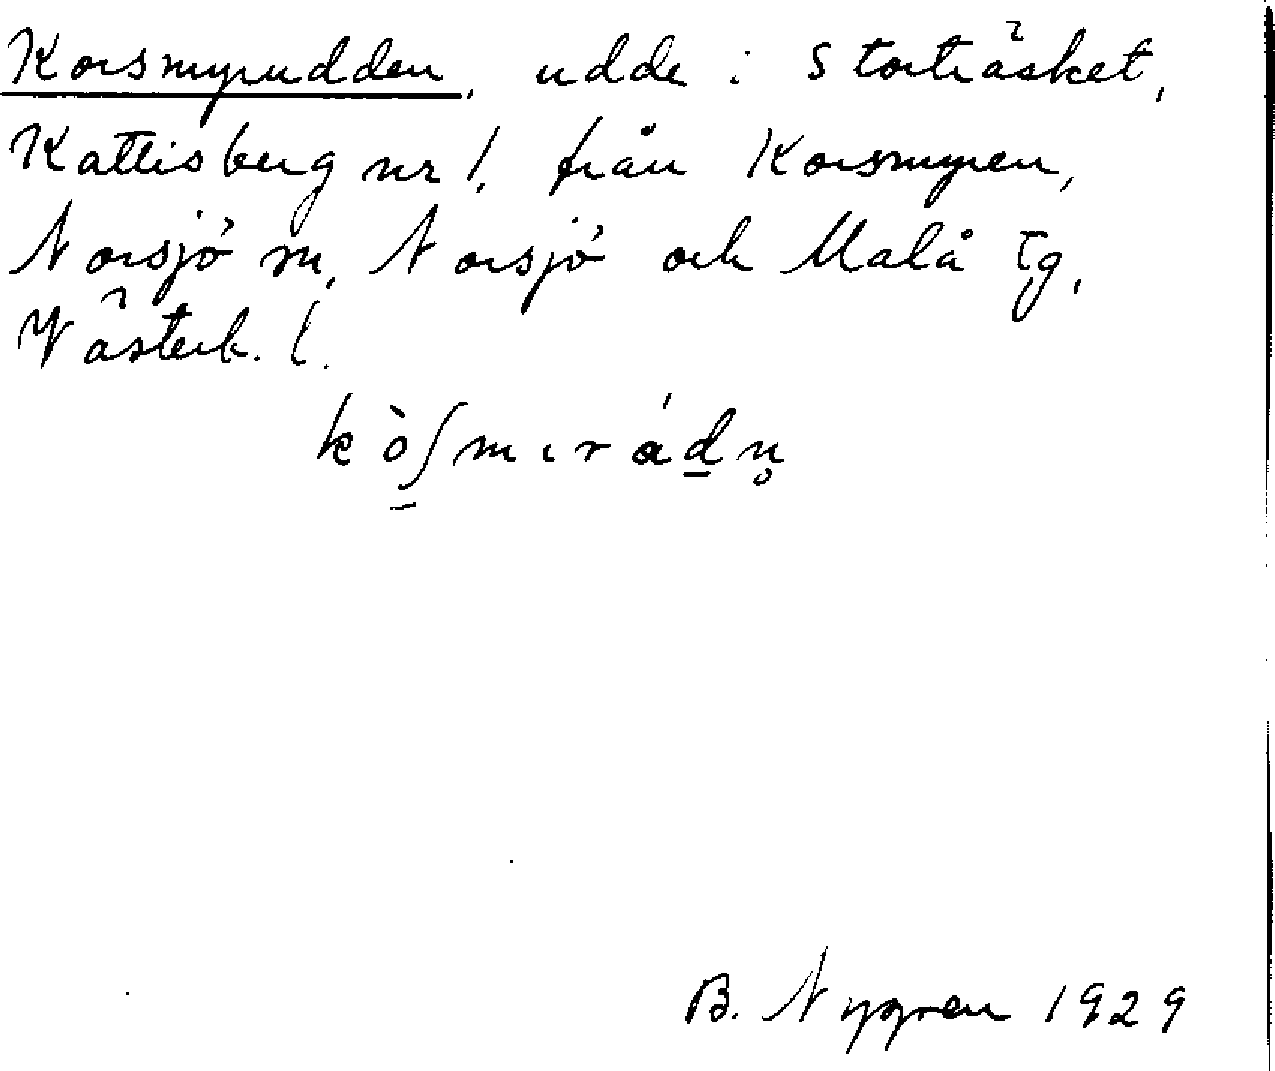 Korsmyrudden, udde i Storträsket,
Kattisberg nr 1, från Korsmyren,
Norsjö sn, Norsjö och Malå tg,
Västerb. l.
kòʃmırád̲n̥
B. Nygren 1929